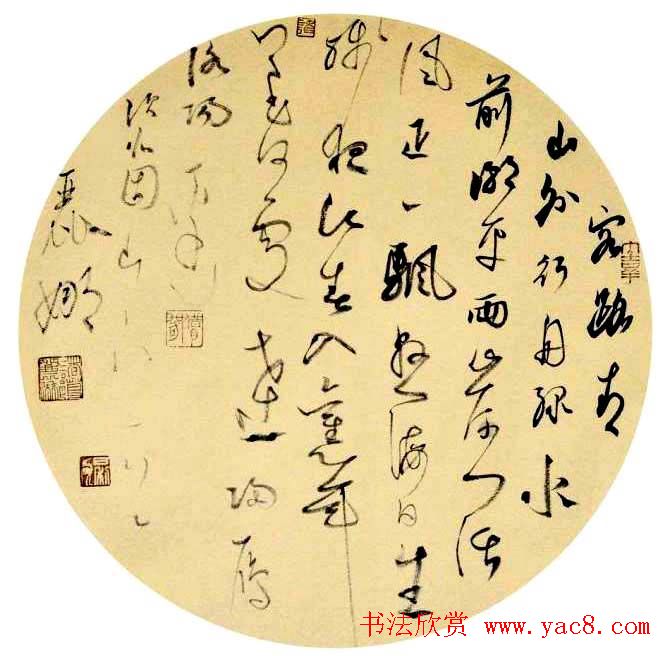 客路青
山外行舟绿水
前潮平两岸阔
风正一颿悬海日生
残夜江春入旧年
乡书何处达归雁
洛阳
次北固山下
麗娜
书法欣赏 www.yac8.com